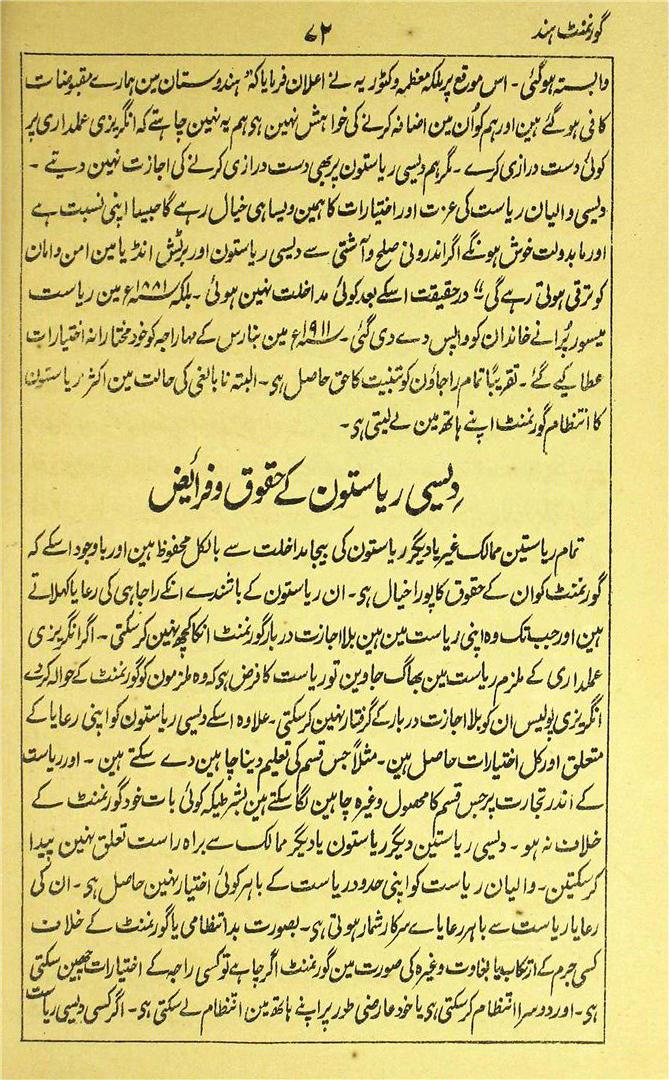 گورنمنٹ ہند
۷۲
وابستہ ہوگئی۔ اس موقع پر ملکہ معظمہ وکٹوریہ نے اعلان فرمایا کہ "ہندوستان مین ہمارے مقبوضات
کافی ہوگئے ہین اور ہم کو اُن مین اضافہ کرنے کی خواہش نہین ہی ہم یہ نہین چاہتے کہ انگریزی عملداری پر
کوئی دست درازی کرے۔ مگر ہم دیسی ریاستون پر بھی دست درازی کرنے کی اجازت نہین دیتے۔
دیسی والیان ریاست کی عزت اور اختیارات کا ہمین ویسا ہی خیال رہے گا جیسا اپنی نسبت ہے
اور مابدولت خوش ہونگے اگر اندرونی صلح و آشتی سے دیسی ریاستون اور برٹش انڈیا مین امن و امان
کو ترقی ہوتی رہے گی"۔ درحقیقت اسکے بعد کوئی مداخلت نہین ہوئی۔ بلکہ ۱۸۸۱ء مین ریاست
میسور پُرانے خاندان کو واپس دے دی گئی۔ ۱۹۱۱ء مین بنارس کے مہاراجہ کو خود مختارانہ اختیارات
عطا کیے گئے۔ تقریباً تمام راجاؤن کو تبنیت کا حق حاصل ہی۔ البتہ نابالغی کی حالت مین اکثر ریاستون
کا انتظام گورنمنٹ اپنے ہاتھ مین لے لیتی ہی۔
دیسی ریاستون کے حقوق و فرائض
تمام ریاستین ممالک غیر یا دیگر ریاستون کی بیجا مداخلت سے بالکل محفوظ ہین اور باوجود اسکے کہ
گورنمنٹ کو ان کے حقوق کا پورا خیال ہی۔ ان ریاستون کے باشندے انکے راجا ہی کی رعایا کہلاتے
ہین اور جب تک وہ اپنی ریاست مین ہین بلا اجازت دربار گورنمنٹ انکا کچھ نہین کر سکتی۔ اگر انگریزی
عملداری کے ملزم ریاست مین بھاگ جاوین تو ریاست کا فرض ہی کہ وہ ملزمون کو گورنمنٹ کے حوالہ کردے
انگریزی پولیس ان کو بلا اجازت دربار کے گرفتار نہین کر سکتی۔ علاوہ اسکے دیسی ریاستون کو اپنی رعایا کے
متعلق اور کل اختیارات حاصل ہین۔ مثلاً جس قسم کی تعلیم دینا چاہین دے سکتے ہین۔ اور ریاست
کے اندر تجارت پر جس قسم کا محصول وغیرہ چاہین لگا سکتے ہین بشرطیکہ کوئی بات خود گورنمنٹ کے
خلاف نہ ہو۔ دیسی ریاستین دیگر ریاستون یا دیگر ممالک سے براہ راست تعلق نہین پیدا
کر سکتین۔ والیان ریاست کو اپنی حدود ریاست کے باہر کوئی اختیار نہین حاصل ہی۔ ان کی
رعایا ریاست سے باہر رعایاے سرکار شمار ہوتی ہی۔ بصورت بد انتظامی یا گورنمنٹ کے خلاف
کسی جرم کے ارتکاب یا بغاوت وغیرہ کی صورت مین گورنمنٹ اگر چاہے تو کسی راجہ کے اختیارات چھین سکتی
ہی۔ اور دوسرا انتظام کر سکتی ہی یا خود عارضی طور پر اپنے ہاتھ مین انتظام لے سکتی ہی۔ اگر کسی دیسی ریاست